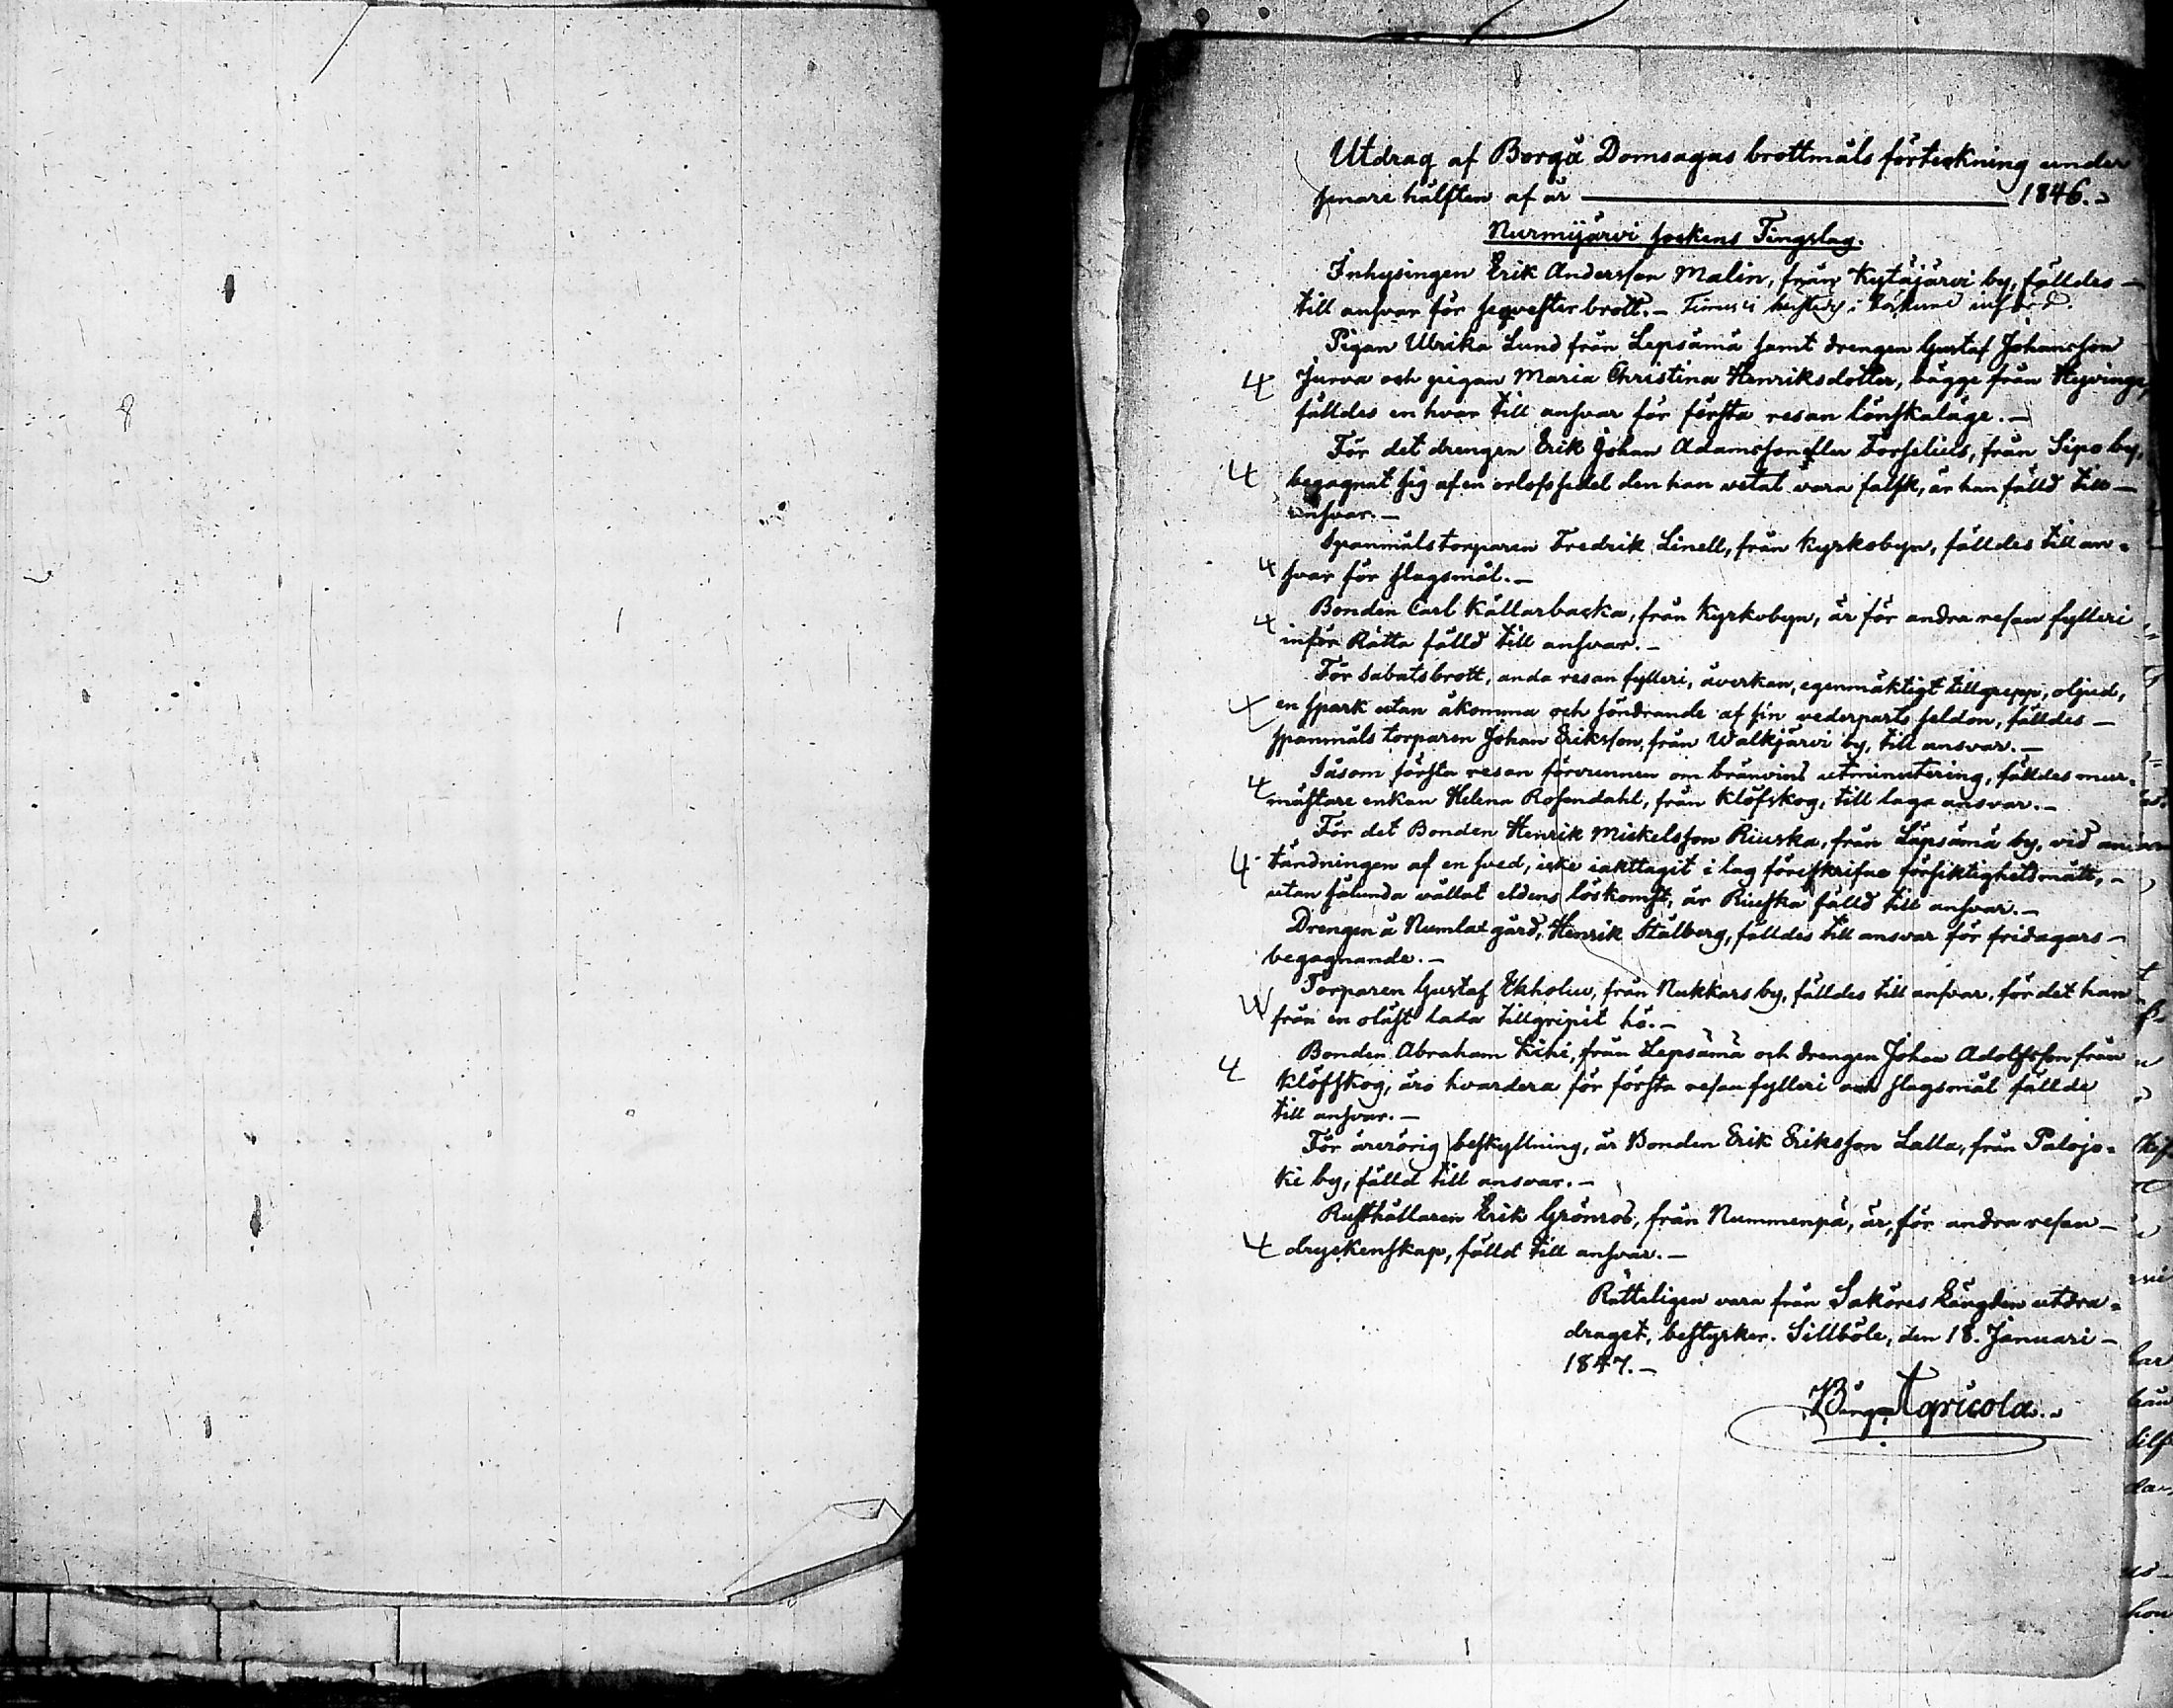 Utdrag af Borgå Domsagas brottmåls förteckning under
senare hälften af år 1846.
Nurmijärvi Sockens Tingslag.
Inhysingen Erik Andersson Malin, från Kytäjärvi by, fälldes
till ansvar för seqvesterbrott.
Pigan Ulrika Lund från Lepsämä samt drengen Gustaf Johansson
4 Jurva och pigan Maria Christina Henriksdotter, bägge från Hyvinge,
fälldes en hvar till ansvar för första resan lönskaläge.
För det drengen Erik Johan Adamsson eller Forselius, från Sipo by,
4 begagnat sig af en orlofssedel den han vetat vara falsk, är han fälld till
ansvar.
Spanmålstorparen Fredrik Linell, från Kyrkobyn, fälldes till an-
4 svar för slagsmål.
Bonden Carl Källarbacka, från Kyrkobyn, är för andra resan fylleri
4 inför Rätta fälld till ansvar.
För Sabatsbrott, anda resan fylleri, åverkan, egenmäktigt tillgrepp, oljud,
4 en spark utan åkomma och söndrande af sin vederparts seldon, fälldes
spanmåls torparen Johan Eriksson, från Walkjärvi by, till ansvar.
Såsom första resan förvunnen om bränvins utminutering, fälldes mur-
4 mästare enkan Helena Rosendahl, från Klöfskog, till laga ansvar.
För det Bonden Henrik Mickelsson Riuska, från Läpsämä by, vid
4 tändningen af en sved, icke iakttagit i lag föreskrifne försiktighetsmått,
utan sålunda vållat eldens löskomst, är Riuska fälld till ansvar.
Drengen å Numlax gård, Henrik Stålberg, fälldes till ansvar för fridagars
begagnande.
Torparen Gustaf Ekholm, från Nukkars by, fälldes till ansvar, för det han
från en olåst lada tillgripit hö.
Bonden Abraham Kihi, från Lepsämä och drengen Johan Adolfsson från
4 Klöfskog, äro hvardera för första resan fylleri och slagsmål fällde
till ansvar.
För ärerörig beskyllning, är Bonden Erik Eriksson Lalla, från Palojo-
ki by, fälld till ansvar.
Rusthållaren Erik Grönros, från Nummenpä, är, för andra resan
4 dryckenskap, fälld till ansvar.
Rätteligen vara från Saköres Längden utdra-
draget, bestyrker. Sillböle, den 18. Januari
1847.
Agricola.